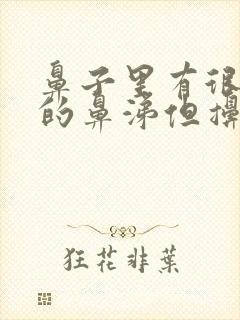 鼻子里有很
的鼻涕但擤
狂花非葉